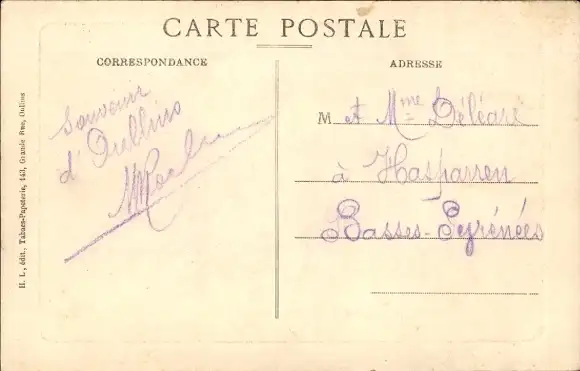 CARTE POSTALE
CORRESPONDANCE
Souvenir
d'Oullins
ADRESSE
M et Mme Déléart
à Hasparren
Basses-Pyrénées
H. L., édit., Tabacs-Papeterie, 143, Grande Rue, Oullins